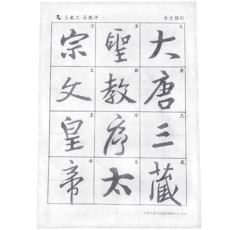 王羲之·圣教序
大唐三藏
聖教序太
宗文皇帝